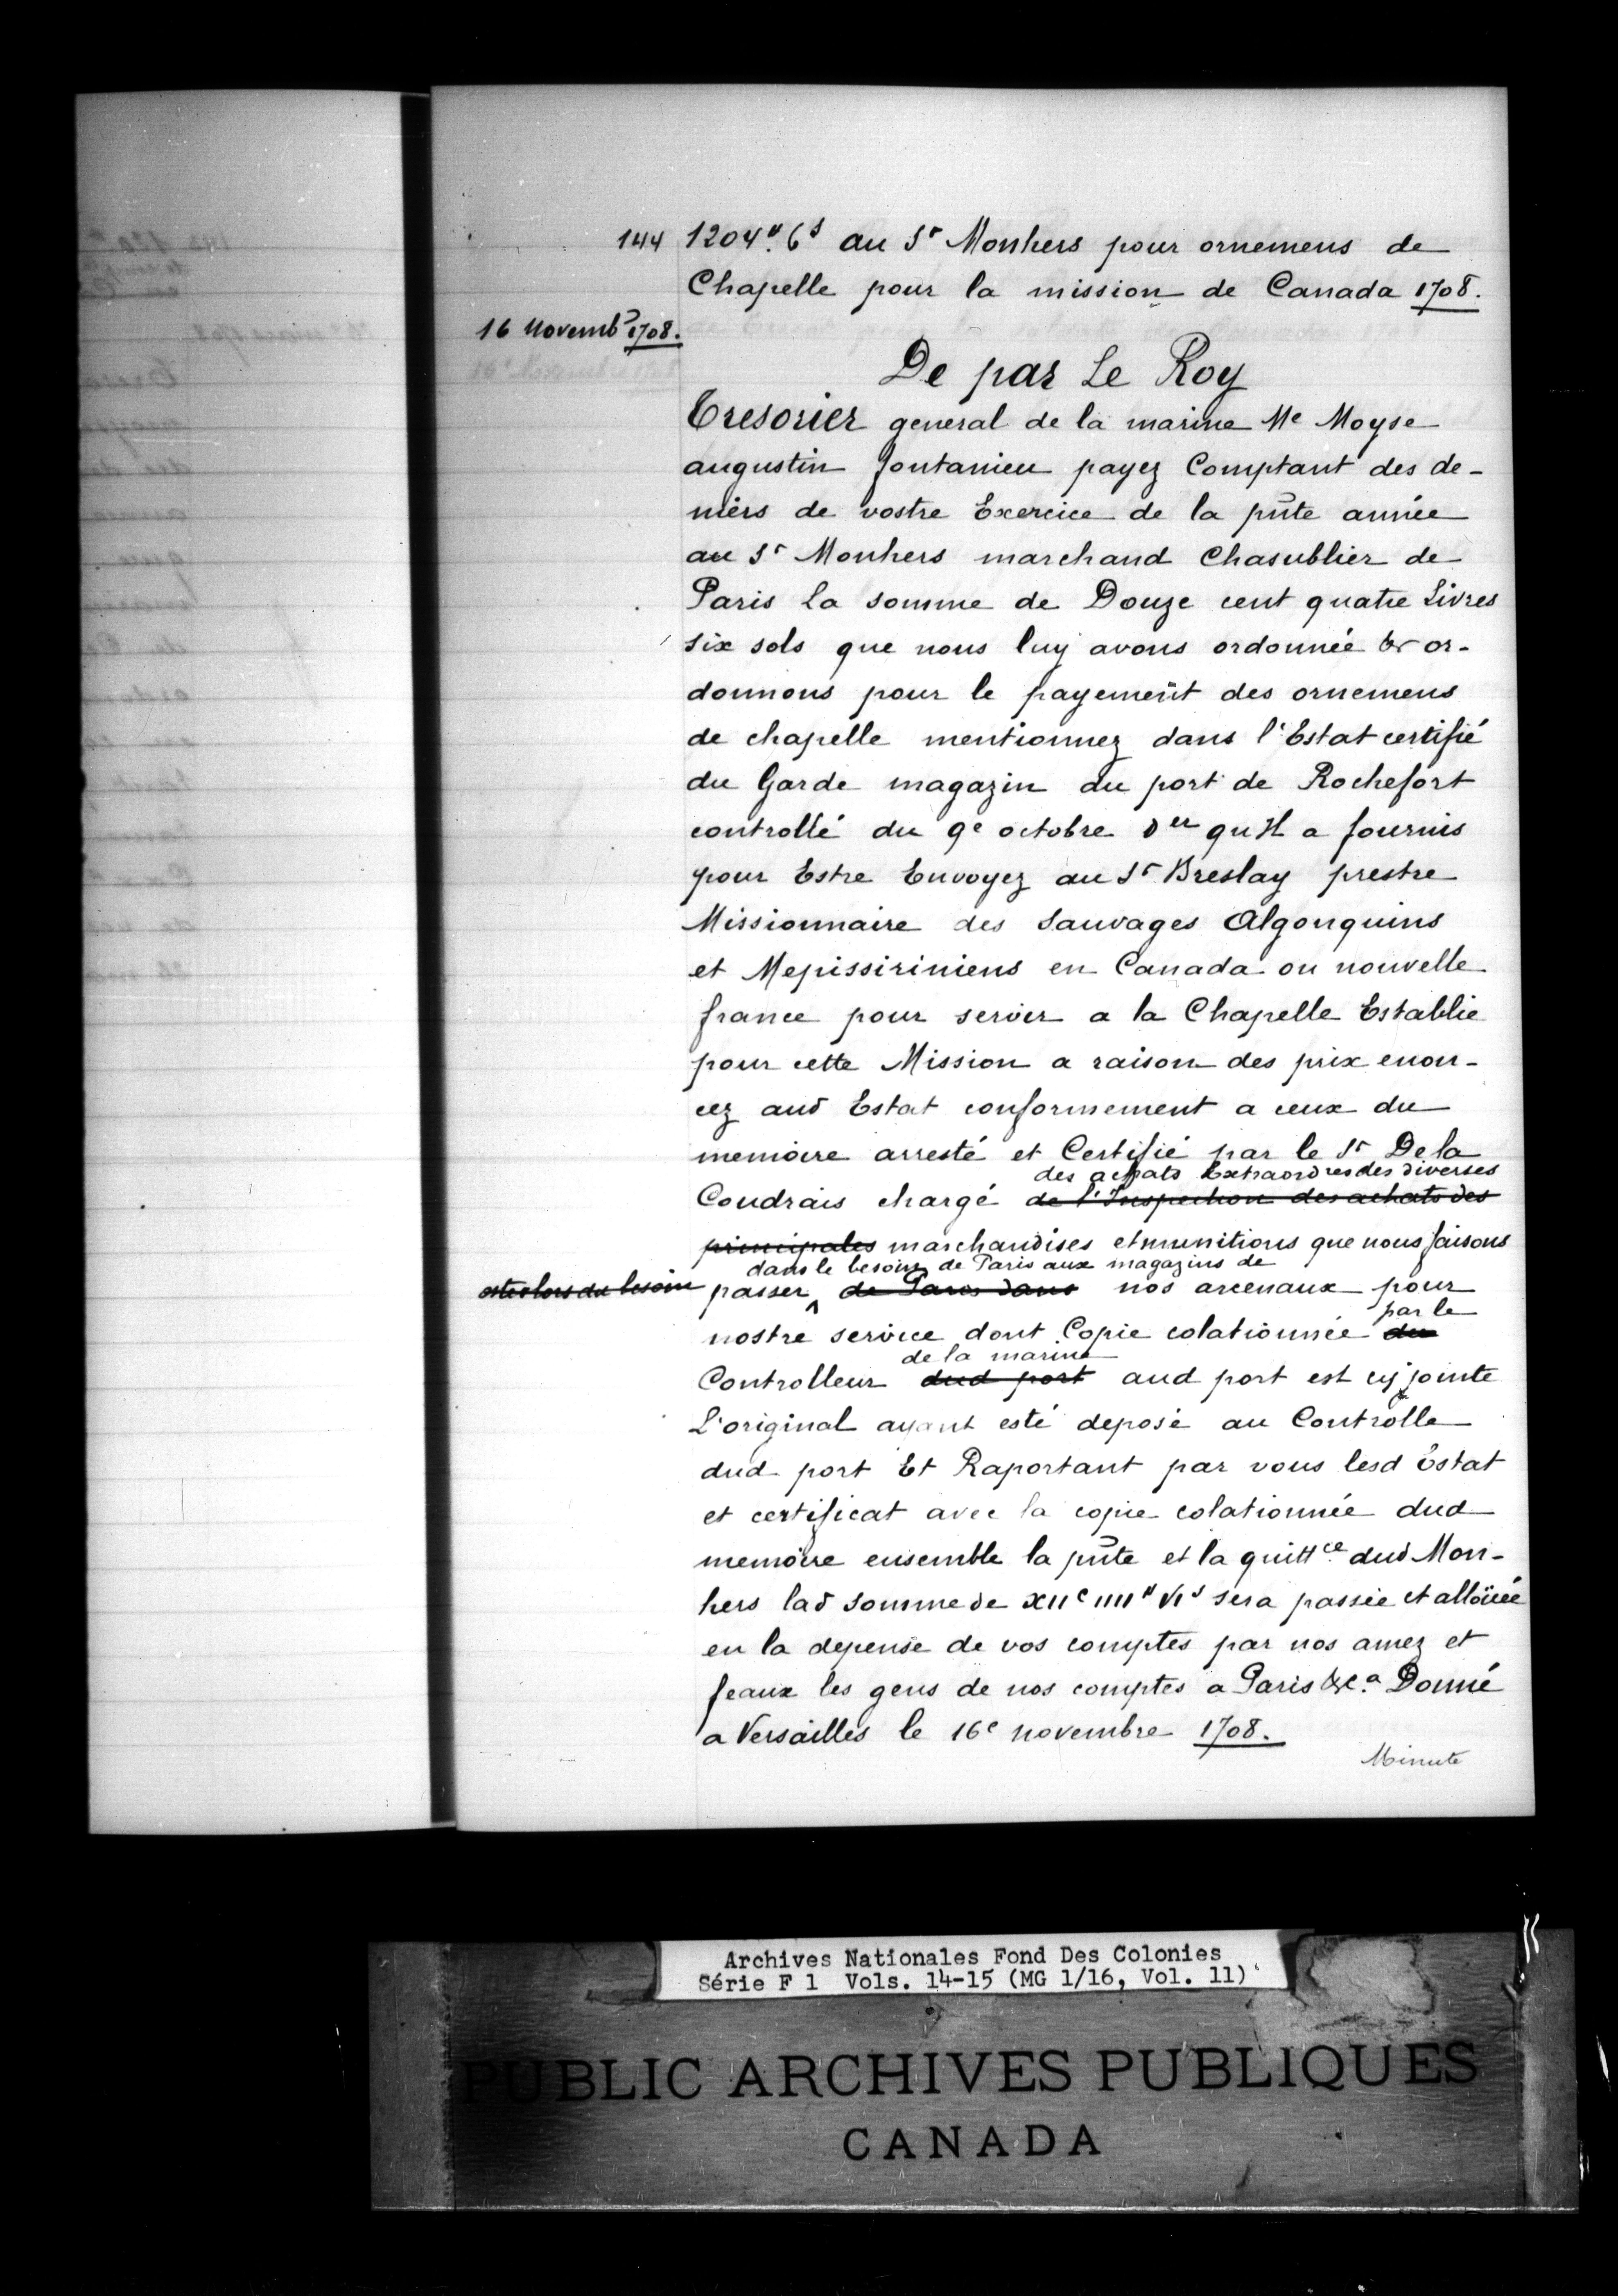 144 1204# 6s au Sr Monhers pour ornemens de
Chapelle pour la mission de Canada 1708.
16 Novembre 1708.
De par Le Roy
Tresorier general de la marine Me Moyse
augustin fontanieu payez Comptant des de-
niers de vostre Exercice de la pñte année
au Sr Monhers marchand Chasublier de
Paris la somme de Douze cent quatre Livres
six sols que nous luy avons ordonnée & or-
donnons pour le payement des ornemens
de chapelle mentionnez dans l'Estat certifié
du Garde magazin du port de Rochefort
controllé du 9e octobre der qu'Il a fournis
pour Estre Envoyez au Sr Breslay prestre
Missionnaire des Sauvages Algonquins
et Mepissiriniens en Canada ou nouvelle
france pour servir a la Chapelle Establie
pour cette Mission a raison des prix enon-
cez aud Estat conformement a ceux du
memoire arresté et Certifié par le Sr De la
des achats Extraordres des diverses
Coudrais chargé de l'Inspection des achats des
principales marchandises et munitions que nous faisons
dans le besoin de Paris aux magazins de
lors du besoin passer de Paris dans nos arcenaux pour
par le
nostre service dont Copie colationnée du
de la marine
Controlleur dud port aud port est cy jointe
L'original ayant esté deposé au Controlle
dud port Et Raportant par vous lesd Estat
et certificat avec la copie colationnée dud
memoire ensemble la pñte et la quittce dud Mon-
hers lad somme de XIIc IIII# VIs sera passée et alloüée
en la depense de vos comptes par nos amez et
feaux les gens de nos comptes a Paris &c.a Donné
a Versailles le 16e novembre 1708.
Minute
Archives Nationales Fond Des Colonies
Série F 1 Vols. 14-15 (MG 1/16, Vol. 11)
PUBLIC ARCHIVES PUBLIQUES
CANADA